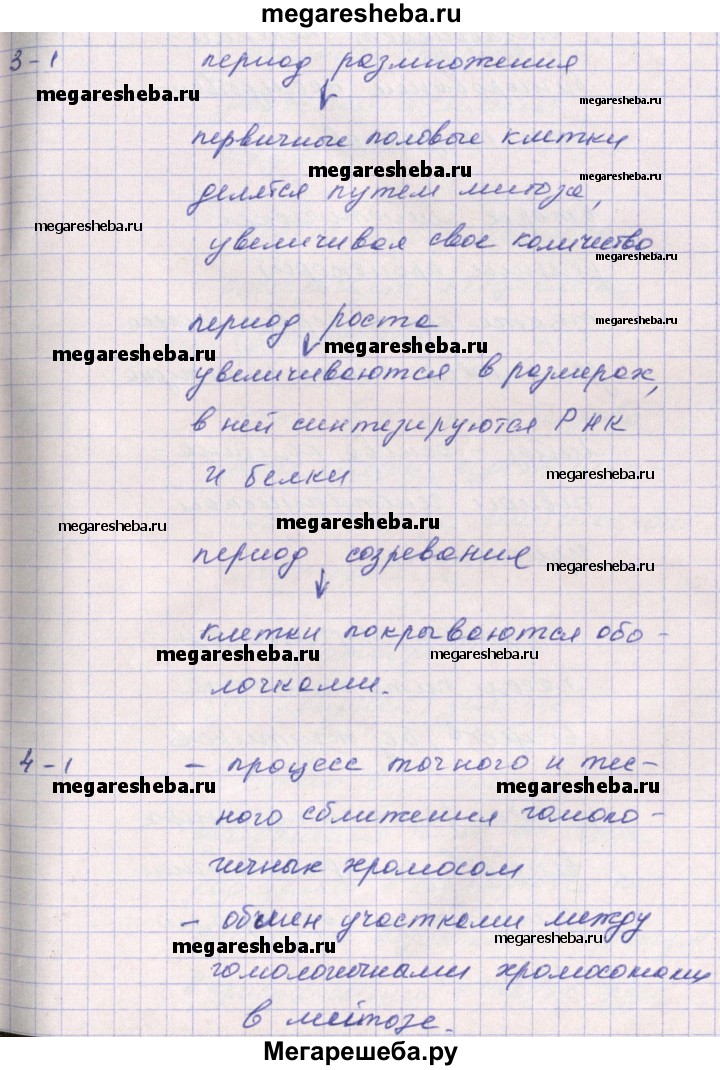 megaresheba.ru
3-1 период размножения
megaresheba.ru
первичные половые клетки
megaresheba.ru
megaresheba.ru
делятся путем митоза,
megaresheba.ru
увеличивая свое количество
megaresheba.ru
период роста
megaresheba.ru
megaresheba.ru
megaresheba.ru
увеличиваются в размерах,
в ней синтезируются РНК
и белки
megaresheba.ru
megaresheba.ru
megaresheba.ru
период созревания
megaresheba.ru
клетки покрываются обо-
megaresheba.ru
megaresheba.ru
лочками.
4-1 - процесс точного и тес-
megaresheba.ru
megaresheba.ru
ного сближения гомоло-
гичных хромосом
- обмен участками между
megaresheba.ru
megaresheba.ru
гомологичными хромосомами
в мейозе.
Мегарешеба.ру